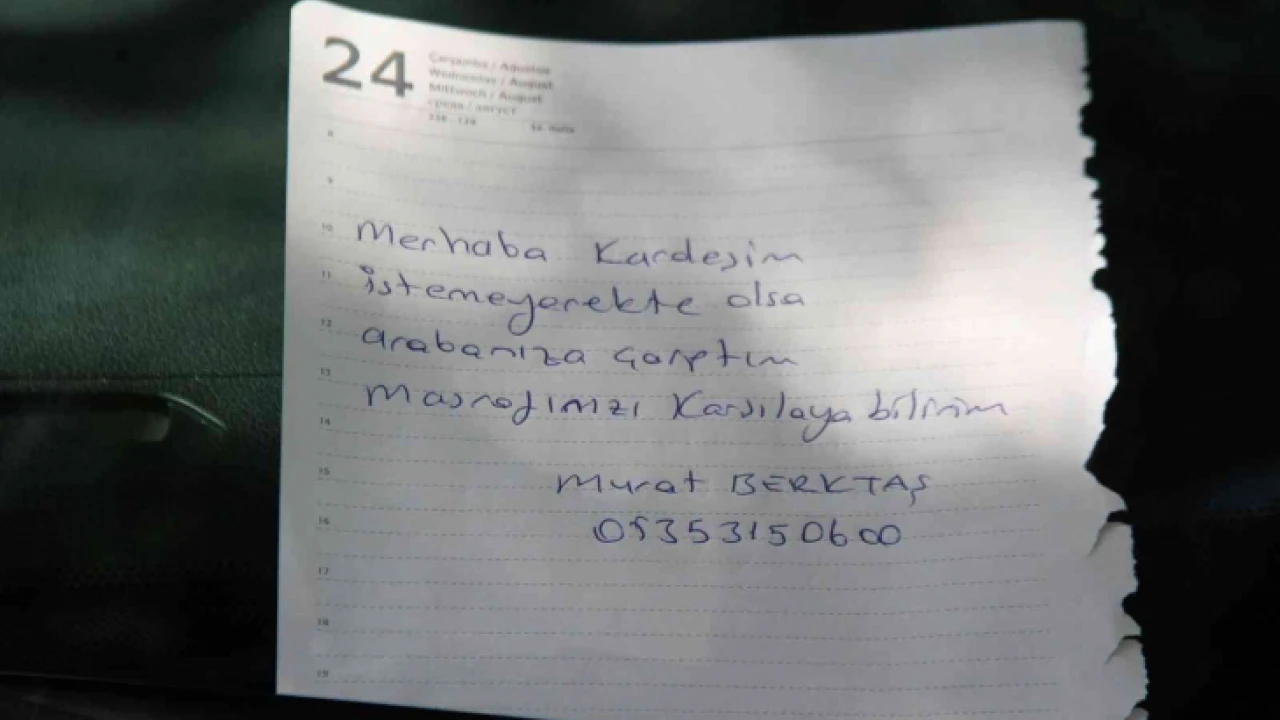 24
Çarşamba / Ağustos
Wednesday / August
Mittwoch / August
среда / август
8
9
10 Merhaba Kardeşim
11 istemeyerekte olsa
12 arabanıza çarptım
13 Masrafınızı Karşılaya bilirim
14
15 Murat BERKTAŞ
16 05353150600
17
18
19